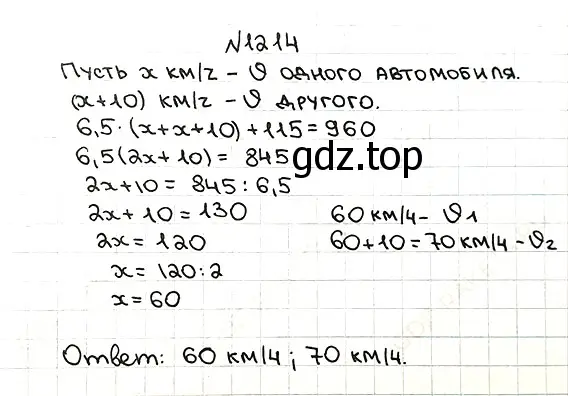 №1214
Пусть x км/г – ϑ одного автомобиля.
(x+10) км/г – ϑ другого.
6,5·(x+x+10)+115=960
6,5(2x+10)= 845
gdz.top
2x+10= 845:6,5
2x+10=130
60 км/ч– ϑ1
2x=120
60+10=70 км/ч–ϑ2
x=120:2
x=60
Ответ: 60 км/ч; 70 км/ч.